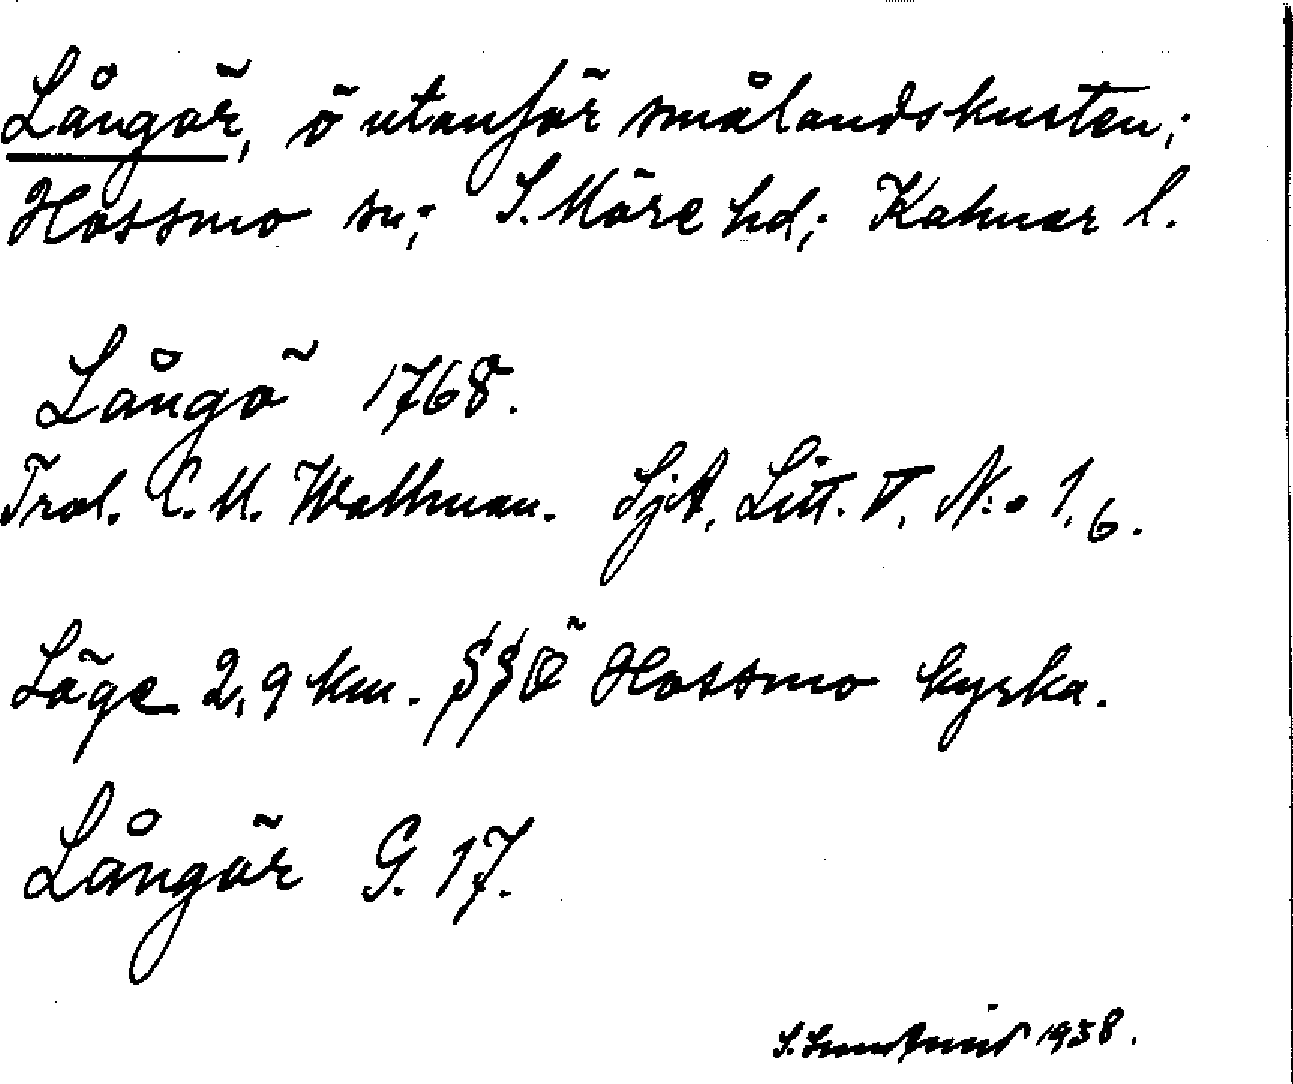 Långör, ö utanför smålandskusten;
Hossmo sn; S. Möre hd; Kalmar l.
Långö 1768.
C. M. Wallman. SjA. Litt. V. N:o 1. 6.
Läge 2,9 km. SSÖ Hossmo kyrka.
Långör G. 17.
S. 1938.